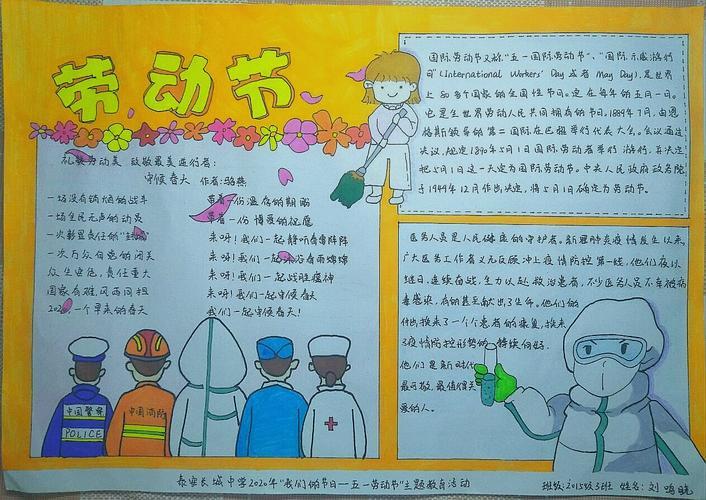 劳动节
礼赞劳动美 致敬最美逆行者:
守候春天 作者:
一场没有硝烟的战斗
一场全民无声的动员
一次彰显责任的"封城"
一次万众的闭关
众生,责任重大
国家有难,风雨同担
2020,一个早来的春天
带着一份温存的期盼
带着一份博爱的祝愿
来呀!我们一起静听春雷阵阵
来呀!我们一起沐浴春雨绵绵
来呀!我们一起战胜瘟神
来呀!我们一起守候春天
我们!一起守候春天!
中国警察
POLICE
中国消防
国际劳动节又称"五一国际劳动节"、"国际示威游行
日"(International Workers' Day 或者 May Day),是世界
上80多个国家的全国性节日。定在每年的五月一日。
它是全世界劳动人民共同拥有的节日。1889年7月,由恩
格斯领导的第二国际在巴黎举行代表大会。会议通过
决议,规定1890年5月1日国际劳动者举行游行,并决定
把5月1日这一天定为国际劳动节。中央人民政府政务院
于1949年12月作出决定,将5月1日确定为劳动节。
医务人员是人民健康的守护者。新冠肺炎疫情发生以来,
广大医务工作者义无反顾冲上疫情防控第一线,他们夜以
继日,连续奋战,全力以赴救治患者,不少医务人员不幸被病
毒感染,有的甚至献出了生命。他们的
付出换来了一个个患者的康复,换来
了疫情防控形势的持续向好。
他们是新时代
最可敬、最值得关
爱的人。
泰安长城中学2020年"我们的节日—五一劳动节"主题教育活动
班级:2015级3班 姓名:刘鸣晓